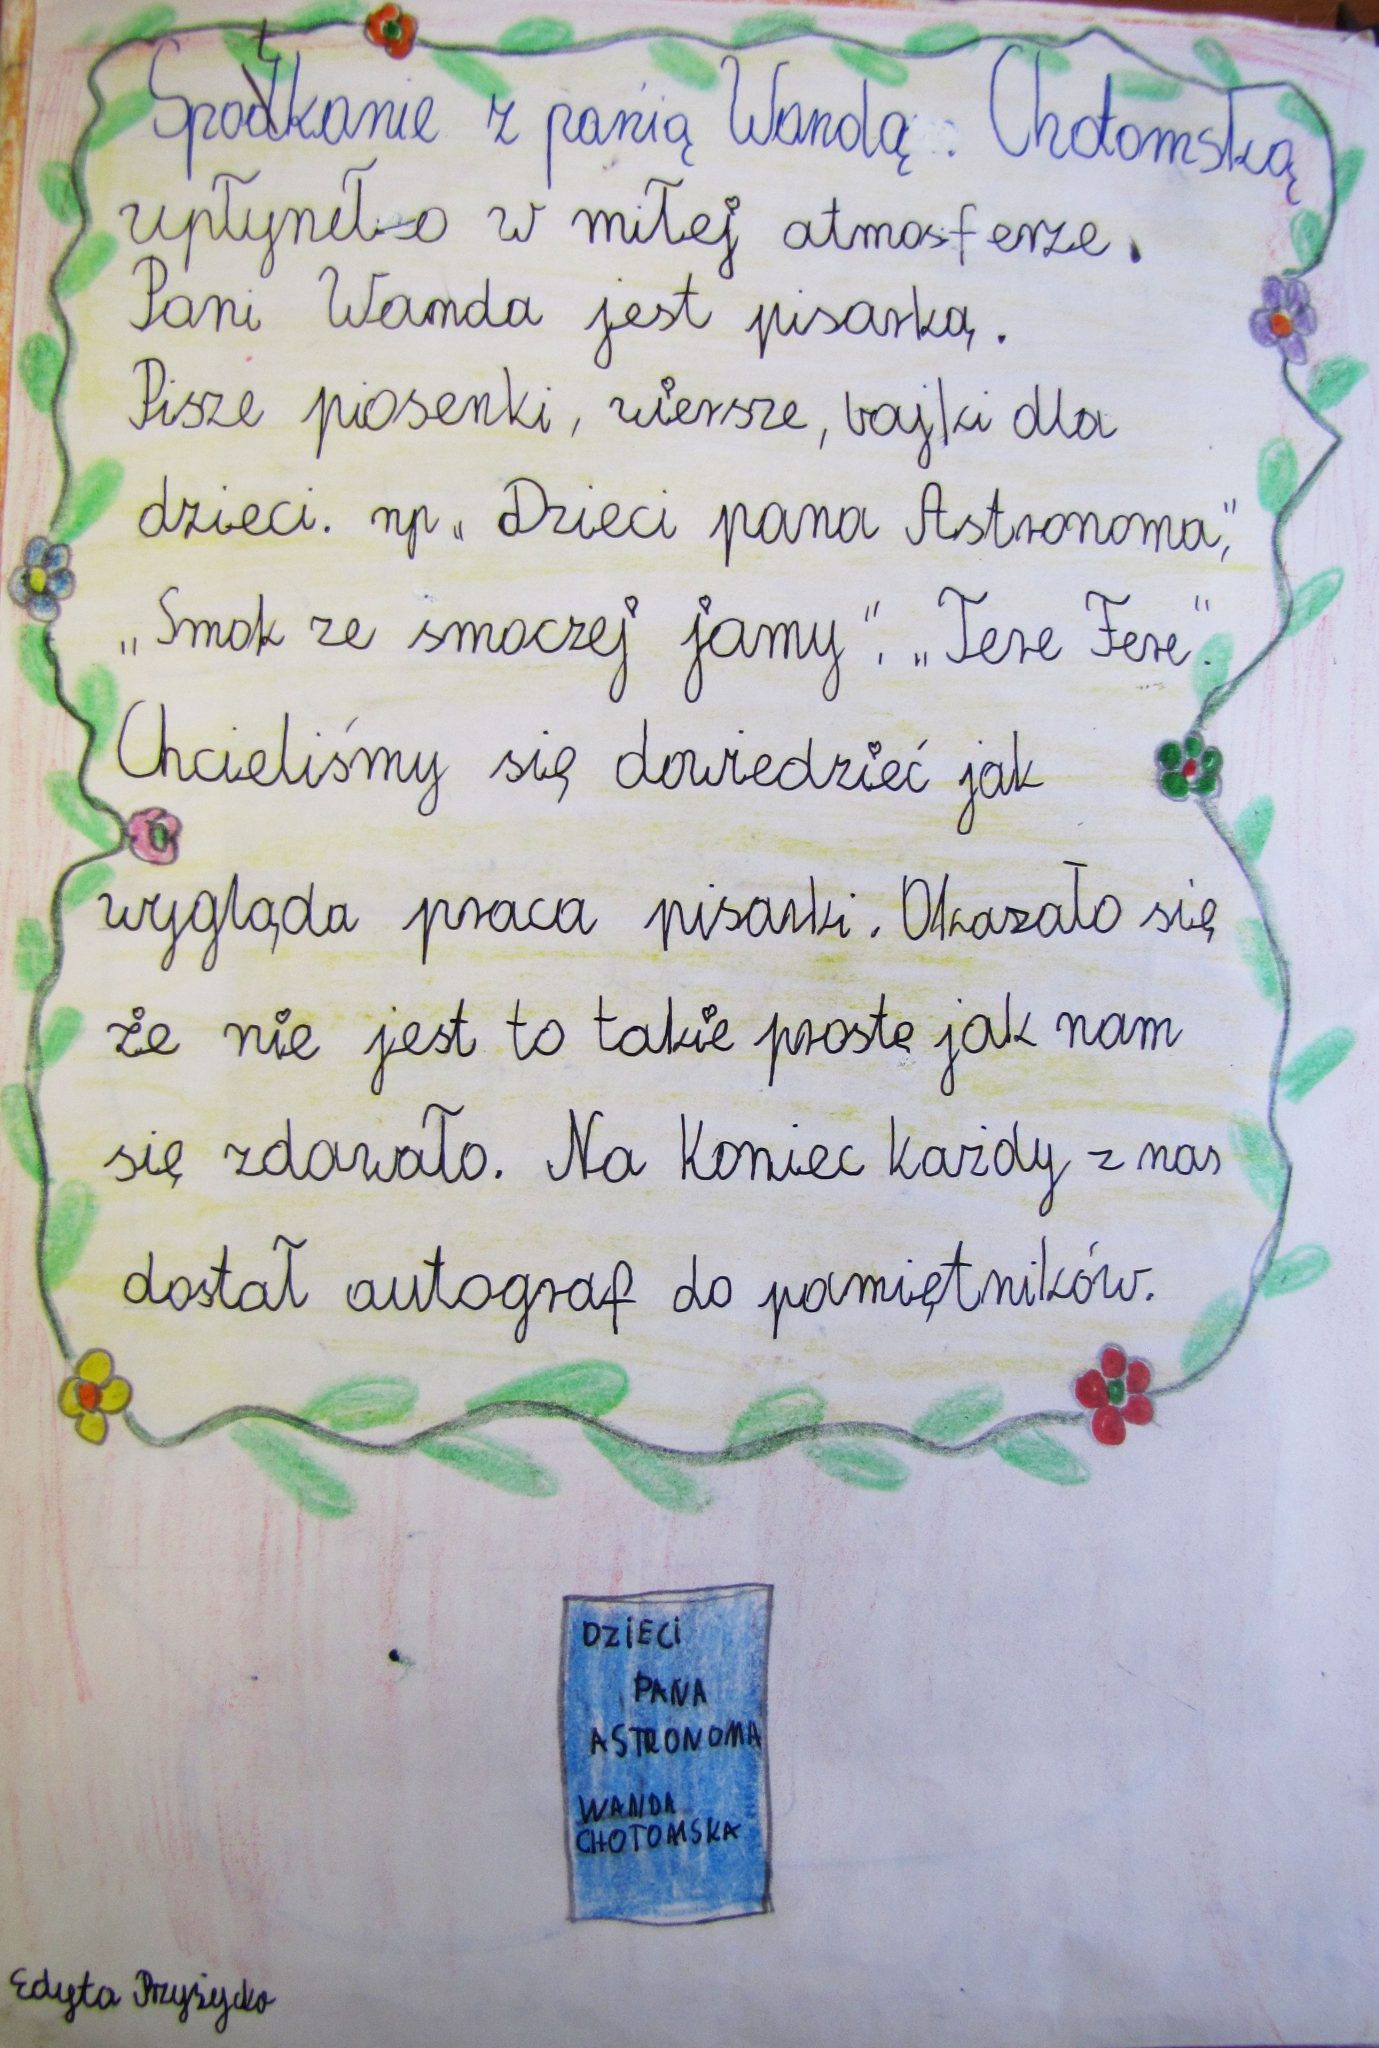 Spotkanie z panią Wandą Chotomską
upłyneło w miłej atmosferze.
Pani Wanda jest pisarką.
Pisze piosenki, wiersze, bajki dla
dzieci. np „Dzieci pana Astronoma",
„Smok ze smoczej jamy", „Tere Fere".
Chcieliśmy się dowiedzieć jak
wygląda praca pisarki. Okazało się
że nie jest to takie proste jak nam
się zdawało. Na Koniec każdy z nas
dostał autograf do pamiętników.
DZIECI
PANA
ASTRONOMA
WANDA
CHOTOMSKA
Edyta Przyżycko